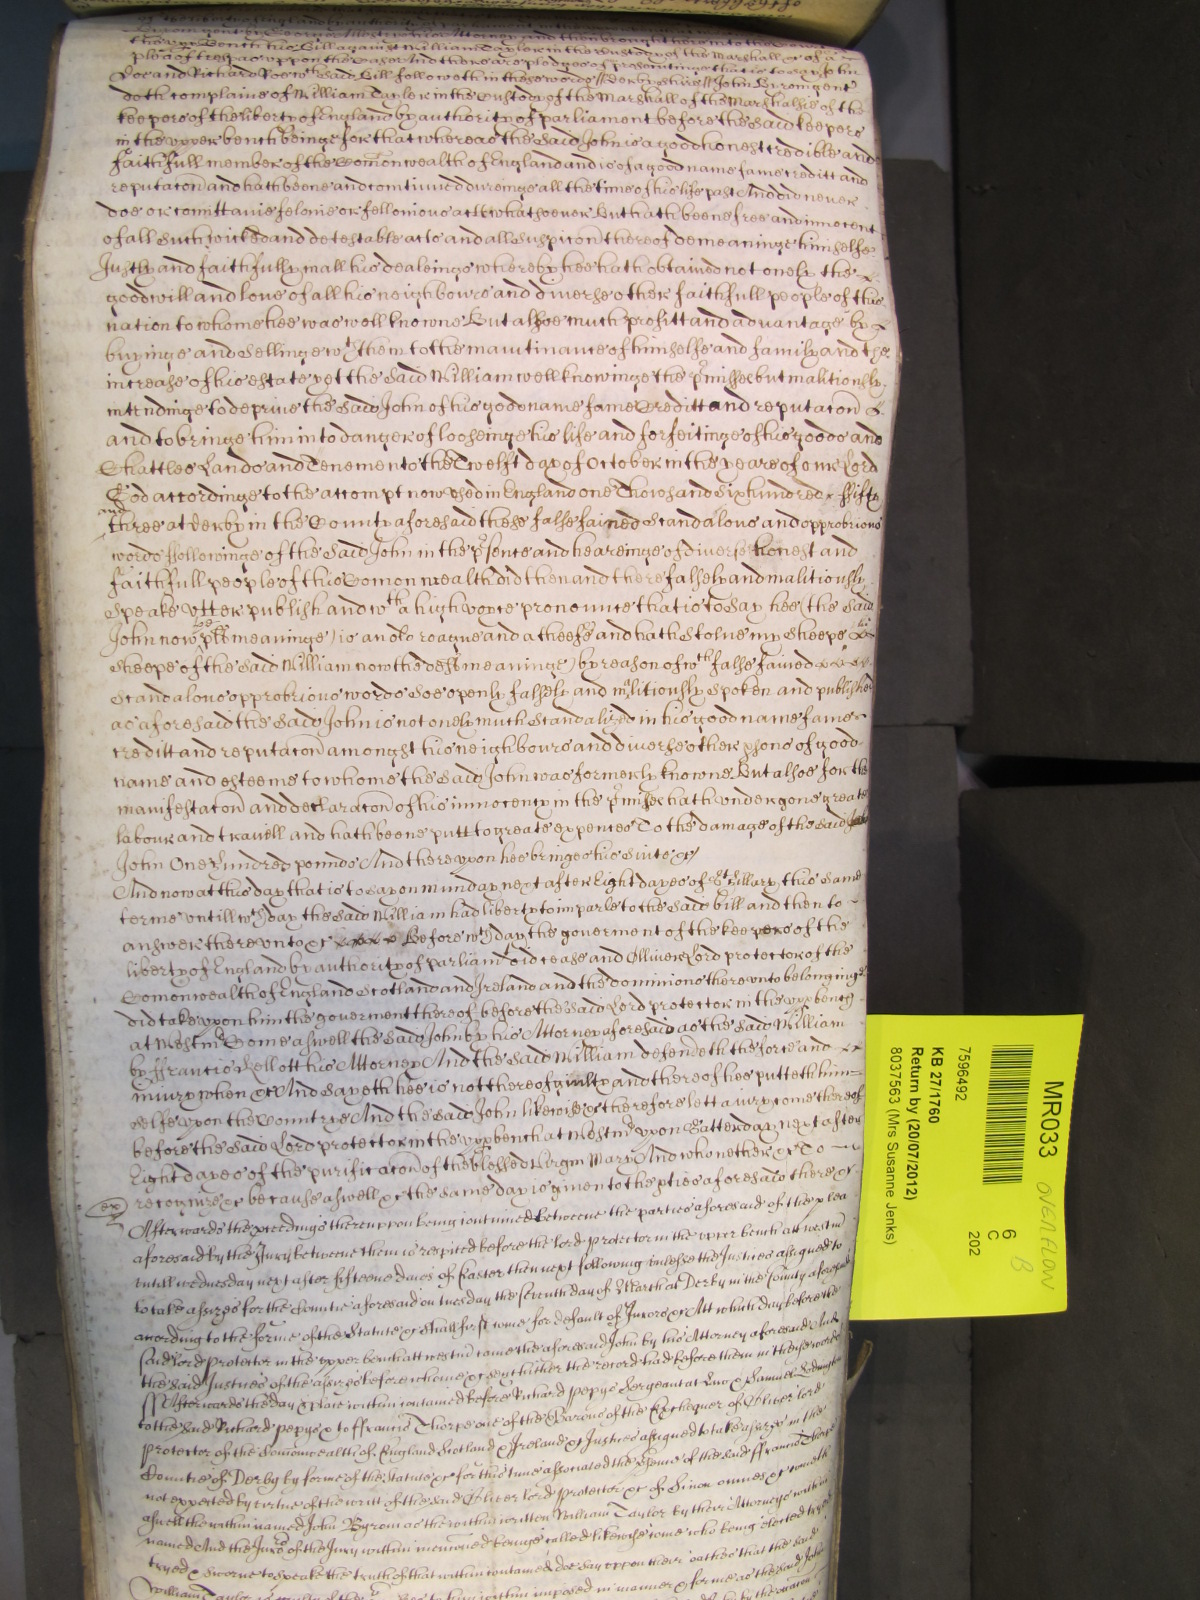 the upp Bench his Bill against William Taylor in the Custody of the Marshall &c of a
plea of trespas uppon the Case And there are pledges of prosecutinge that is to say John
Doe and Richard Roe wch said Bill followeth in these words // Derbyshire // John Byrom gent
doth complaine of William Tayler in the Custody of the Marshall of the Marshalsie of the
keepers of the liberty of England by authority of parliament before the said keepers
in the upper bench beinge for that whereas the said John is a good honest credible and
faithfull member of the Comonwealth of England and is of a good name fame creditt and
reputacon and hath beene and contynued dureinge all the time of his life past And did never
doe or comitt anie felonie or fellonious act whatsoever But hath beene free and innocent
of all such wicked and detestable acts and all suspicon thereof demeaninge himselfe
Justly and faithfully in all his dealeings whereby hee hath obtained not onely the
goodwill and love of all his neighbours and diverse other faithfull people of this
nation to whome hee was well knowne But alsoe much profitt and advantage by
buyinge and sellinge wth them to the maintinance of himselfe and family and the
increase of his estate yet the said William well knowinge the pmisses but malitiously
intendinge to deprive the said John of his good name fame Creditt and reputacon &
and to bringe him into danger of looseinge his life and forfeitinge of his goods and
Chattles Lands and Tenements the Twelft day of October in the yeare of our Lord
God accordinge to the accompt now used in England one Thowsand six hundred fifty
and
three at Derby in the County aforesaid these false fained scandalous and opprobrious
words followinge of the said John in the psence and heareinge of diverse honest and
faithfull people of this Comonwealth did then and there falsely and malitiously
speake utter publish and wth a high voyce pronounce that is to say hee (the said
John now the plt meaninge) is an old roague and a theefe and hath stolne my sheepe the
sheepe of the said William now the deft meaninge) by reason of wch false fained
scandalous opprobrious words soe openly falsely and malitiously spoken and published
as aforesaid the said John is not onely much scandalized in his good name fame
creditt and reputacon amongst his neighbours and diverse other psons of good
name and esteeme to whome the said John was formerly knowne But alsoe for the
manifestacon and declaracon of his innocency in the pmisses hath undergone greate
labour and travell and hath beene putt to greate expences To the damage of the said
John One Hundred pounds And thereupon hee brings his suite &c
And now at this day that is to say on munday next after Eight dayes of St Hillary this same
terme untill wch day the said William had liberty to imparle to the said bill and then to
answer thereunto &c Before wch day the goverment of the keepers of the
liberty of England by authority of parliamt did cease and Olliver Lord protector of the
Comonwealth of England Scotland and Ireland and the dominions thereunto belonginge
did take upon him the goverment thereof before the said Lord protector in the upp bench
at Westmr Come aswell the said John by his Attorney aforesaid as the said William
by Francis Kellott his Attorney And the said William defendeth the force and
iniury when &c And sayeth hee is not thereof guilty and thereof hee putteth him
selfe upon the Countrie And the said John likewise &c therefore lett a iury come thereof
before the said Lord protector in the upp bench at Westmr upon Satterday next after
Eight dayes of the purificacon of the blessed Virgin Mary And who neither &c To
recognize &c because aswell &c the same day is given to the pties aforesaid there &c
Afterwards the pceedings thereuppon being continued betweene the parties aforesaid of the plea
aforesaid by the Jury betweene them is respited before the lord protector in the upper bench att westmr
untill wednesday next after fifteene daies of Easter then next following unlesse the Justices assigned to
take assizes for the Countie aforesaid on tuesday the seventh day of March at Derby in the County aforesaid
according to the forme of the Statute &c shall first come for default of Jurors &c Att which day before the
said lord protector in the upper bench att westmr came the aforesaid John by his Attorney aforesaid And
the said Justices of the assizes before whome &c sent hither the record had before them in theise words
ss Afterwards the day & place within contained before Richard pepys Sergeant at law & Samuel
to the said Richard pepys & to ffrancis Thorpe one of the Barons of the Exchequer of Oliver lord
protector of the Commonwealth of England Scotland & Ireland &c Justices assigned to take assizes in the
Countie of Derby by forme of the statute &c for this time associated the psence of the said ffrancis Thorpe
not expected by vertue of the writt of the said Oliver lord protector &c of Si non omnes &c cometh
aswell the within named John Byrom as the within written William Taylor by their Attorneys within
named And the Jurors of the Jury within mencioned being called likewise come who being elected tryed
tryed & sworne to speake the truth of that within contained doe say uppon their oathes that the said
William Taylor is guilty of the within imposed in manner & forme as the said John
MR033
OVERFLOW
6
C
B
202
7596492
KB 27/1760
Return by (20/07/2012)
8037563 (Mrs Susanne Jenks)